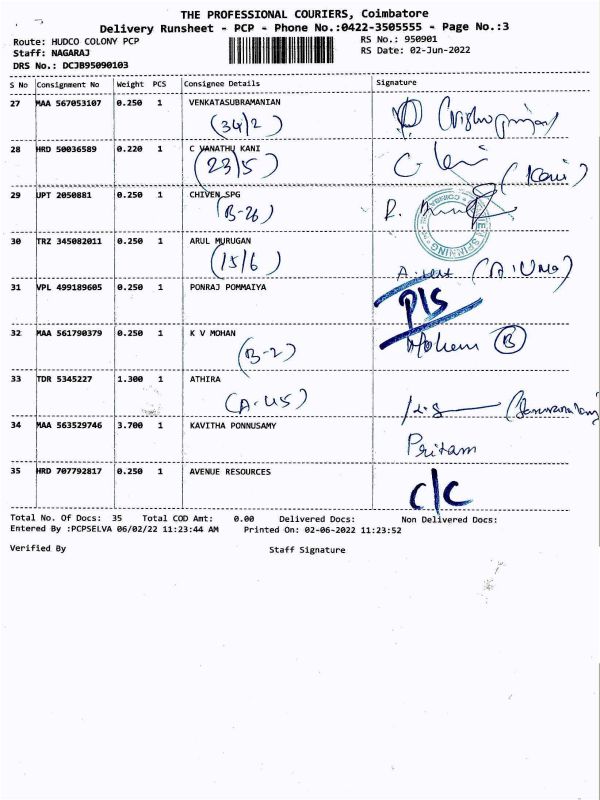 THE PROFESSIONAL COURIERS, Coimbatore
Delivery Runsheet - PCP - Phone No.:0422-3505555 - Page No.:3
Route: HUDCO COLONY PCP
RS No.: 950901
Staff: NAGARAJ
RS Date: 02-Jun-2022
DRS No.: DCJB95090103
S No Consignment No Weight PCS Consignee Details Signature
27 MAA 567053107 0.250 1 VENKATASUBRAMANIAN
(34/2)
28 HRD 50036589 0.220 1 C VANATHU KANI
(23/5) (Kani)
29 UPT 2050881 0.250 1 CHIVEN SPG
(B-26)
SPINNING
30 TRZ 345082011 0.250 1 ARUL MURUGAN
(15/6) (A.UMA)
31 VPL 499189605 0.250 1 PONRAJ POMMAIYA
P/S
32 MAA 561790379 0.250 1 K V MOHAN
(B-2) B
33 TDR 5345227 1.300 1 ATHIRA
(A-45)
34 MAA 563529746 3.700 1 KAVITHA PONNUSAMY
Pritam
35 HRD 707792817 0.250 1 AVENUE RESOURCES
c/c
Total No. Of Docs: 35 Total COD Amt: 0.00 Delivered Docs: Non Delivered Docs:
Entered By :PCPSELVA 06/02/22 11:23:44 AM Printed On: 02-06-2022 11:23:52
Verified By Staff Signature